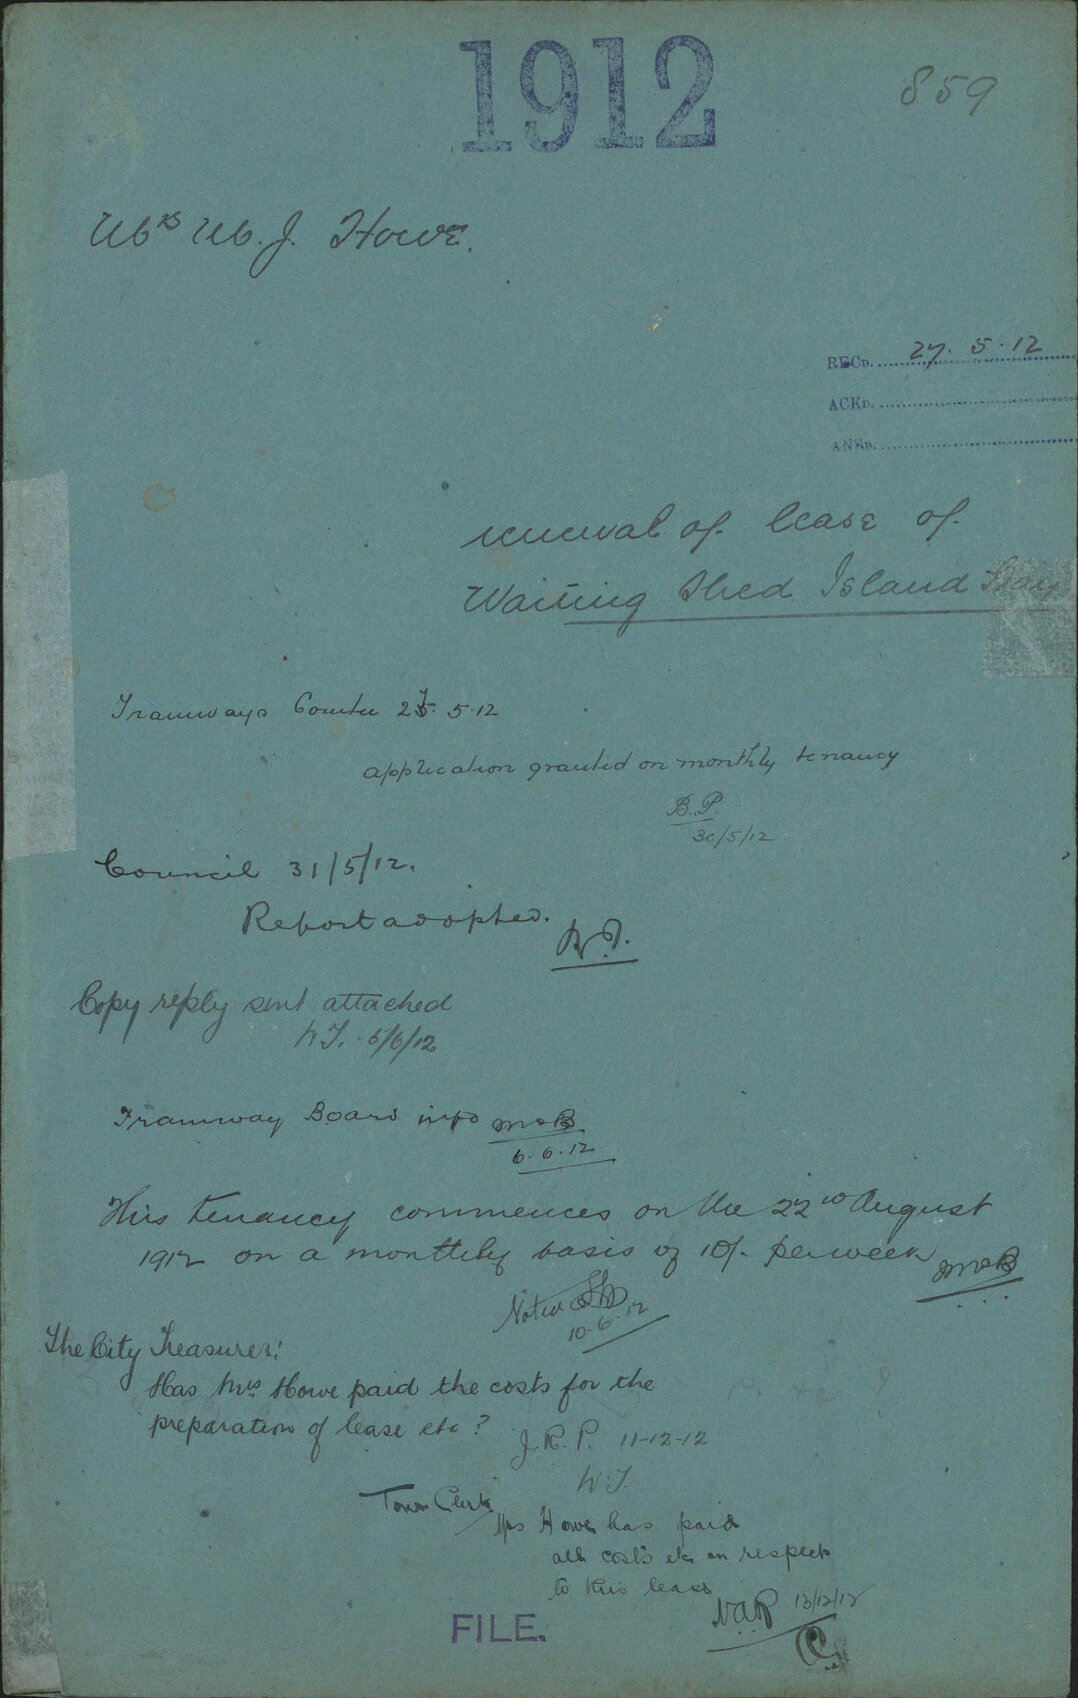 1912
859
Mrs M. J. Howe.
RECD. 27. 5. 12
ACKD.
ANSD.
renewal of lease of
Waiting Shed Island Bay
Tramways Comtee 5.12
application granted on monthly tenancy
B.P.
30/5/12
Council 31/5/12.
Report adopted.
Copy reply sent attached
5/6/12
Tramway Board info
6.6.12
This tenancy commences on the 22nd August
1912 on a monthly basis of 10/- per week
Noted
10.6.12
The City Treasurer:
Has Mrs Howe paid the costs for the
preparation of lease etc?
J.R.P. 11-12-12
Town Clerk
Mrs Howe has paid
all costs etc in respect
to this lease
13/12/12
FILE.